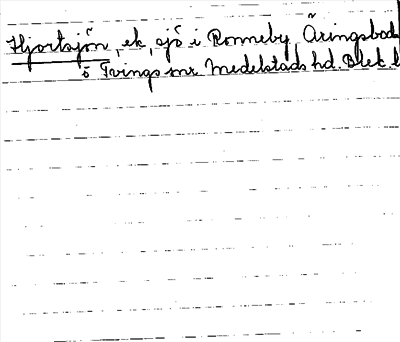 Hjortsjön, ek, sjö i Ronneby, Öringsbod
o Tvings snr Medelstads hd. Blek l